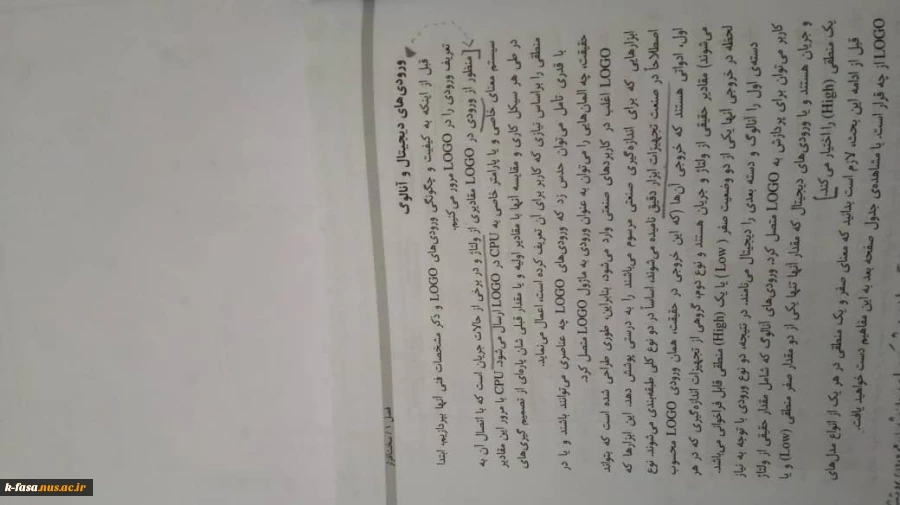 فصل ۱ / سخت‌افزار
ورودی‌های دیجیتال و آنالوگ
قبل از اینکه به کیفیت و چگونگی ورودی‌های LOGO و ذکر مشخصات فنی آنها بپردازیم، ابتدا
تعریف ورودی را در LOGO مرور می‌کنیم.
منظور از ورودی در LOGO مقادیری از ولتاژ و در برخی از حالات جریان است که با اتصال آن به
سیستم معنای خاصی و یا پارامتر خاصی به CPU در LOGO ارسال می‌شود. CPU با مرور این مقادیر
در طی هر سیکل کاری و مقایسه آنها با مقادیر اولیه و یا مقدار قبلی شان پاره‌ای از تصمیم گیری‌های
منطقی را براساس نیازی که کاربر برای آن تعریف کرده است، اعمال می‌نماید.
با قدری تأمل می‌توان حدس زد که ورودی‌های LOGO چه عناصری می‌توانند باشند و یا در
حقیقت، چه المان‌هایی را می‌توان به عنوان ورودی به ماژول LOGO متصل کرد.
LOGO اغلب در کاربردهای صنعتی وارد می‌شود، بنابراین، طوری طراحی شده است که بتواند
ابزارهایی که برای اندازه‌گیری صنعتی مرسوم می‌باشند را به درستی پوشش دهد. این ابزارها که
اصطلاحاً در صنعت تجهیزات ابزار دقیق نامیده می‌شوند، اساساً در دو نوع کلی طبقه‌بندی می‌شوند. نوع
اول، ادواتی هستند که خروجی آن‌ها (که این خروجی در حقیقت، همان ورودی LOGO محسوب
می‌شوند) مقادیر حقیقی از ولتاژ و جریان هستند و نوع دوم، گروهی از تجهیزات اندازه‌گیری که در هر
لحظه در خروجی آنها یکی از دو وضعیت صفر (Low) یا یک (High) منطقی قابل فراخوانی می‌باشد.
دسته‌ی اول را آنالوگ و دسته بعدی را دیجیتال می‌نامند. در نتیجه، دو نوع ورودی با توجه به نیاز
کاربر می‌توان برای پردازش به LOGO متصل کرد. ورودی‌های آنالوگ که شامل مقدار حقیقی از ولتاژ
و جریان هستند و یا ورودی‌های دیجیتال که مقدار آنها تنها یکی از دو مقدار صفر منطقی (Low) و یا
یک منطقی (High) را اختیار می کند.
قبل از ادامه این بحث، لازم است بدانید که معنای صفر و یک منطقی در هر یک از انواع مدل‌های
LOGO از چه قرار است. با مشاهده‌ی جدول صفحه بعد به این مفاهیم دست خواهید یافت.
k-fasa.nus.ac.ir